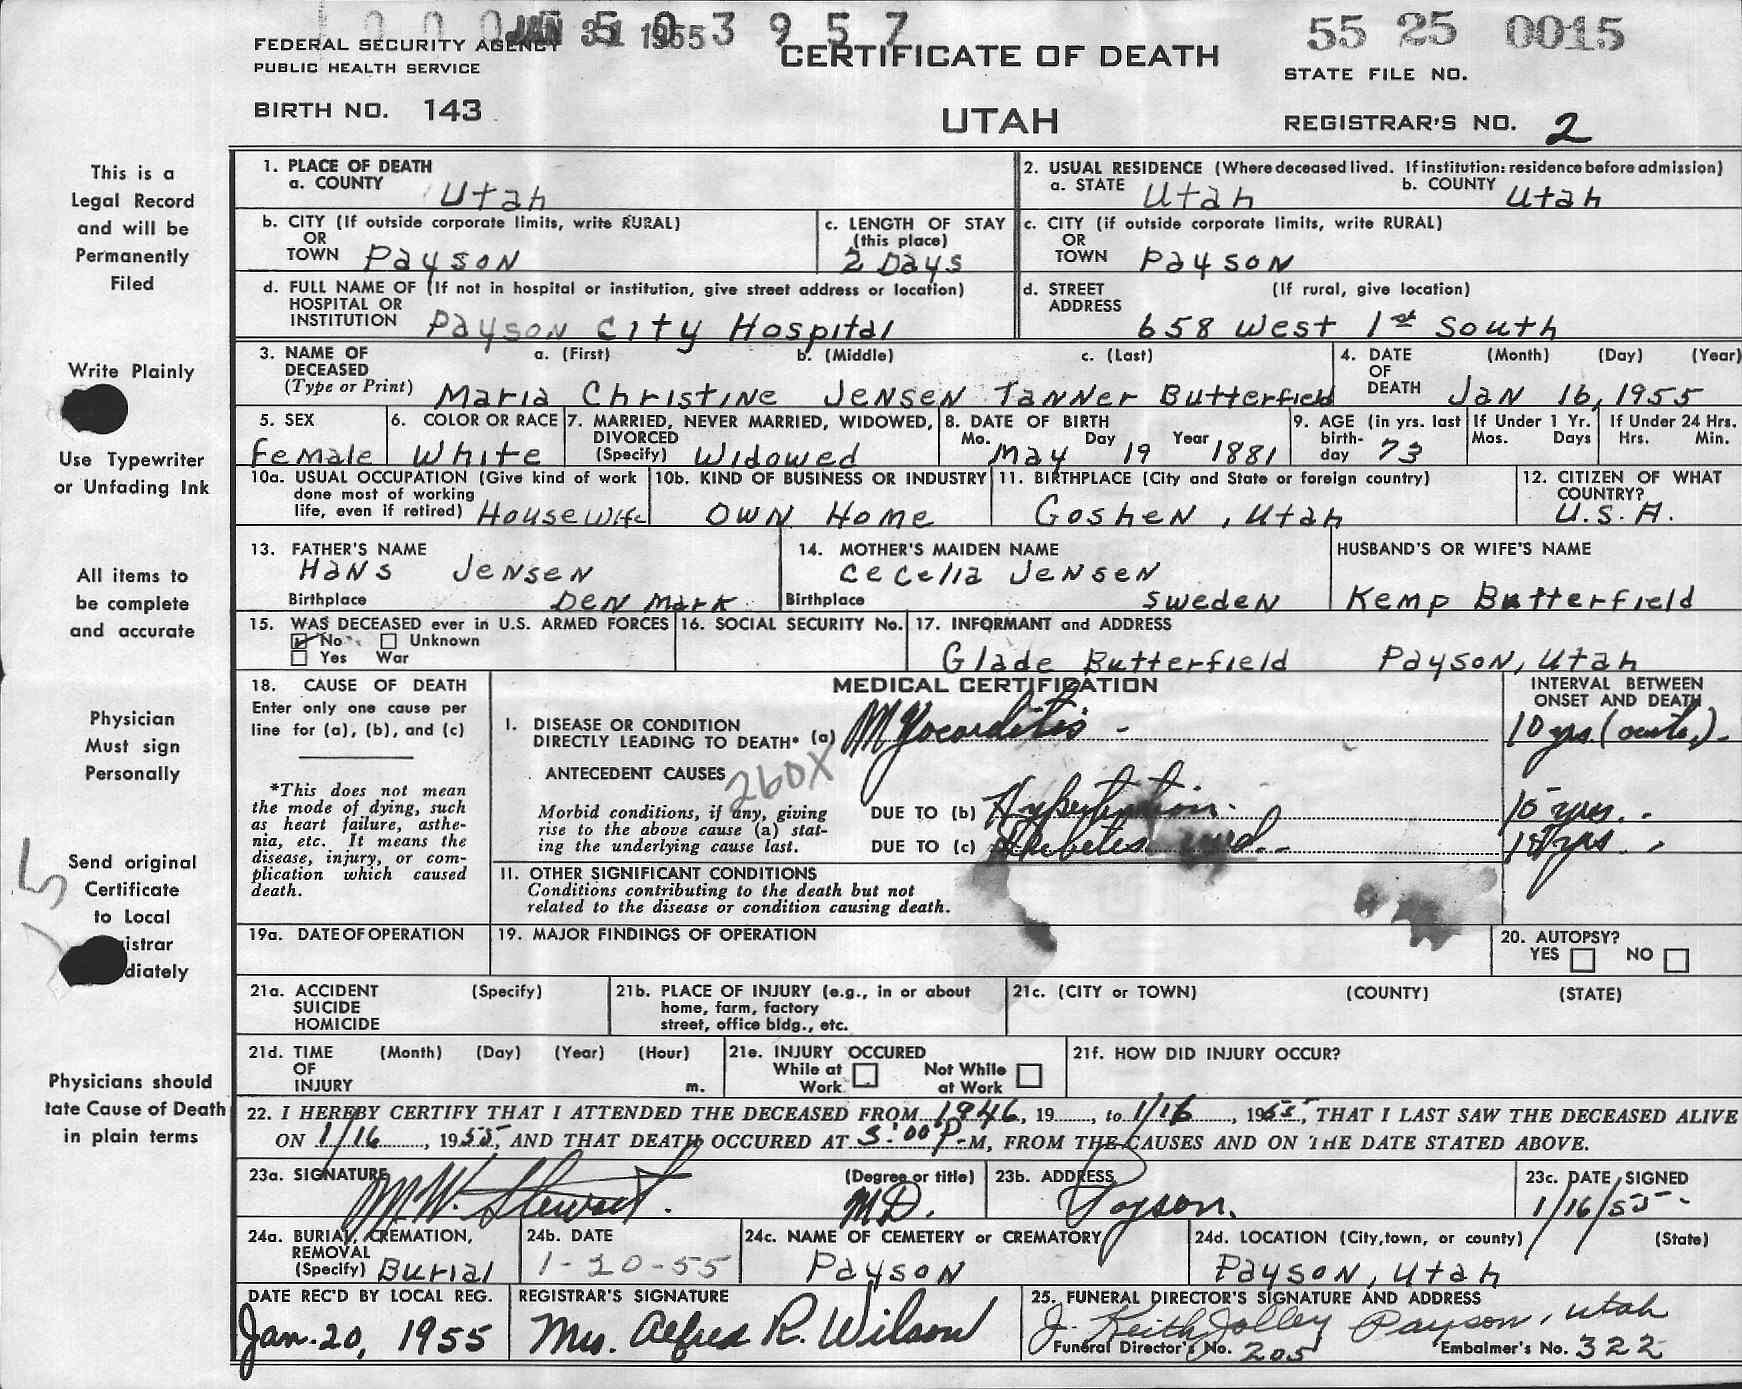 1000 550 3957
JAN 31 1955
55 25 0015
FEDERAL SECURITY AGENCY
PUBLIC HEALTH SERVICE
CERTIFICATE OF DEATH
STATE FILE NO.
BIRTH NO. 143
UTAH
REGISTRAR'S NO. 2
This is a
Legal Record
and will be
Permanently
Filed
Write Plainly
Use Typewriter
or Unfading Ink
All items to
be complete
and accurate
Physician
Must sign
Personally
Send original
Certificate
to Local
istrar
diately
Physicians should
tate Cause of Death
in plain terms
1. PLACE OF DEATH
a. COUNTY Utah
2. USUAL RESIDENCE (Where deceased lived. If institution: residence before admission)
a. STATE Utah b. COUNTY Utah
b. CITY (If outside corporate limits, write RURAL)
OR
TOWN Payson
c. LENGTH OF STAY
(this place)
2 Days
c. CITY (if outside corporate limits, write RURAL)
OR
TOWN Payson
d. FULL NAME OF (If not in hospital or institution, give street address or location)
HOSPITAL OR
INSTITUTION Payson City Hospital
d. STREET (If rural, give location)
ADDRESS
658 West 1st South
3. NAME OF a. (First) b. (Middle) c. (Last)
DECEASED
(Type or Print) Maria Christine Jensen Tanner Butterfield
4. DATE (Month) (Day) (Year)
OF
DEATH Jan 16, 1955
5. SEX
Female
6. COLOR OR RACE
White
7. MARRIED, NEVER MARRIED, WIDOWED,
DIVORCED
(Specify) Widowed
8. DATE OF BIRTH
Mo. Day Year
May 19 1881
9. AGE (in yrs. last
birth-
day 73
If Under 1 Yr.
Mos. Days
If Under 24 Hrs.
Hrs. Min.
10a. USUAL OCCUPATION (Give kind of work
done most of working
life, even if retired) Housewife
10b. KIND OF BUSINESS OR INDUSTRY
Own Home
11. BIRTHPLACE (City and State or foreign country)
Goshen, Utah
12. CITIZEN OF WHAT
COUNTRY?
U.S.A.
13. FATHER'S NAME
Hans Jensen
Birthplace Denmark
14. MOTHER'S MAIDEN NAME
Cecelia Jensen
Birthplace Sweden
HUSBAND'S OR WIFE'S NAME
Kemp Butterfield
15. WAS DECEASED ever in U.S. ARMED FORCES
No Unknown
Yes War
16. SOCIAL SECURITY No.
17. INFORMANT and ADDRESS
Glade Butterfield Payson, Utah
18. CAUSE OF DEATH
Enter only one cause per
line for (a), (b), and (c)
*This does not mean
the mode of dying, such
as heart failure, asthe-
nia, etc. It means the
disease, injury, or com-
plication which caused
death.
MEDICAL CERTIFICATION
INTERVAL BETWEEN
ONSET AND DEATH
I. DISEASE OR CONDITION
DIRECTLY LEADING TO DEATH* (a) Myocarditis - 10 yrs. (acute)
ANTECEDENT CAUSES 260X
Morbid conditions, if any, giving
rise to the above cause (a) stat-
ing the underlying cause last.
DUE TO (b) Hypertension. 15 yrs.
DUE TO (c) Diabetes yrs.
II. OTHER SIGNIFICANT CONDITIONS
Conditions contributing to the death but not
related to the disease or condition causing death.
19a. DATE OF OPERATION
19. MAJOR FINDINGS OF OPERATION
20. AUTOPSY?
YES NO
21a. ACCIDENT (Specify)
SUICIDE
HOMICIDE
21b. PLACE OF INJURY (e.g., in or about
home, farm, factory
street, office bldg., etc.
21c. (CITY or TOWN) (COUNTY) (STATE)
21d. TIME (Month) (Day) (Year) (Hour)
OF
INJURY m.
21e. INJURY OCCURED
While at Work
Not While at Work
21f. HOW DID INJURY OCCUR?
22. I HEREBY CERTIFY THAT I ATTENDED THE DECEASED FROM 1946, 19, to 1/16, 1955, THAT I LAST SAW THE DECEASED ALIVE
ON 1/16, 1955, AND THAT DEATH OCCURED AT :00 P.M, FROM THE CAUSES AND ON THE DATE STATED ABOVE.
23a. SIGNATURE (Degree or title)
M.W. Stewart. M.D.
23b. ADDRESS
Payson.
23c. DATE SIGNED
1/16/55
24a. BURIAL, CREMATION,
REMOVAL
(Specify) Burial
24b. DATE
1-20-55
24c. NAME OF CEMETERY or CREMATORY
Payson
24d. LOCATION (City, town, or county) (State)
Payson, Utah
DATE REC'D BY LOCAL REG.
Jan. 20, 1955
REGISTRAR'S SIGNATURE
Mrs. Alfred R. Wilson
25. FUNERAL DIRECTOR'S SIGNATURE AND ADDRESS
J. Keith Jolley Payson, Utah
Funeral Director's No. 205 Embalmer's No. 322